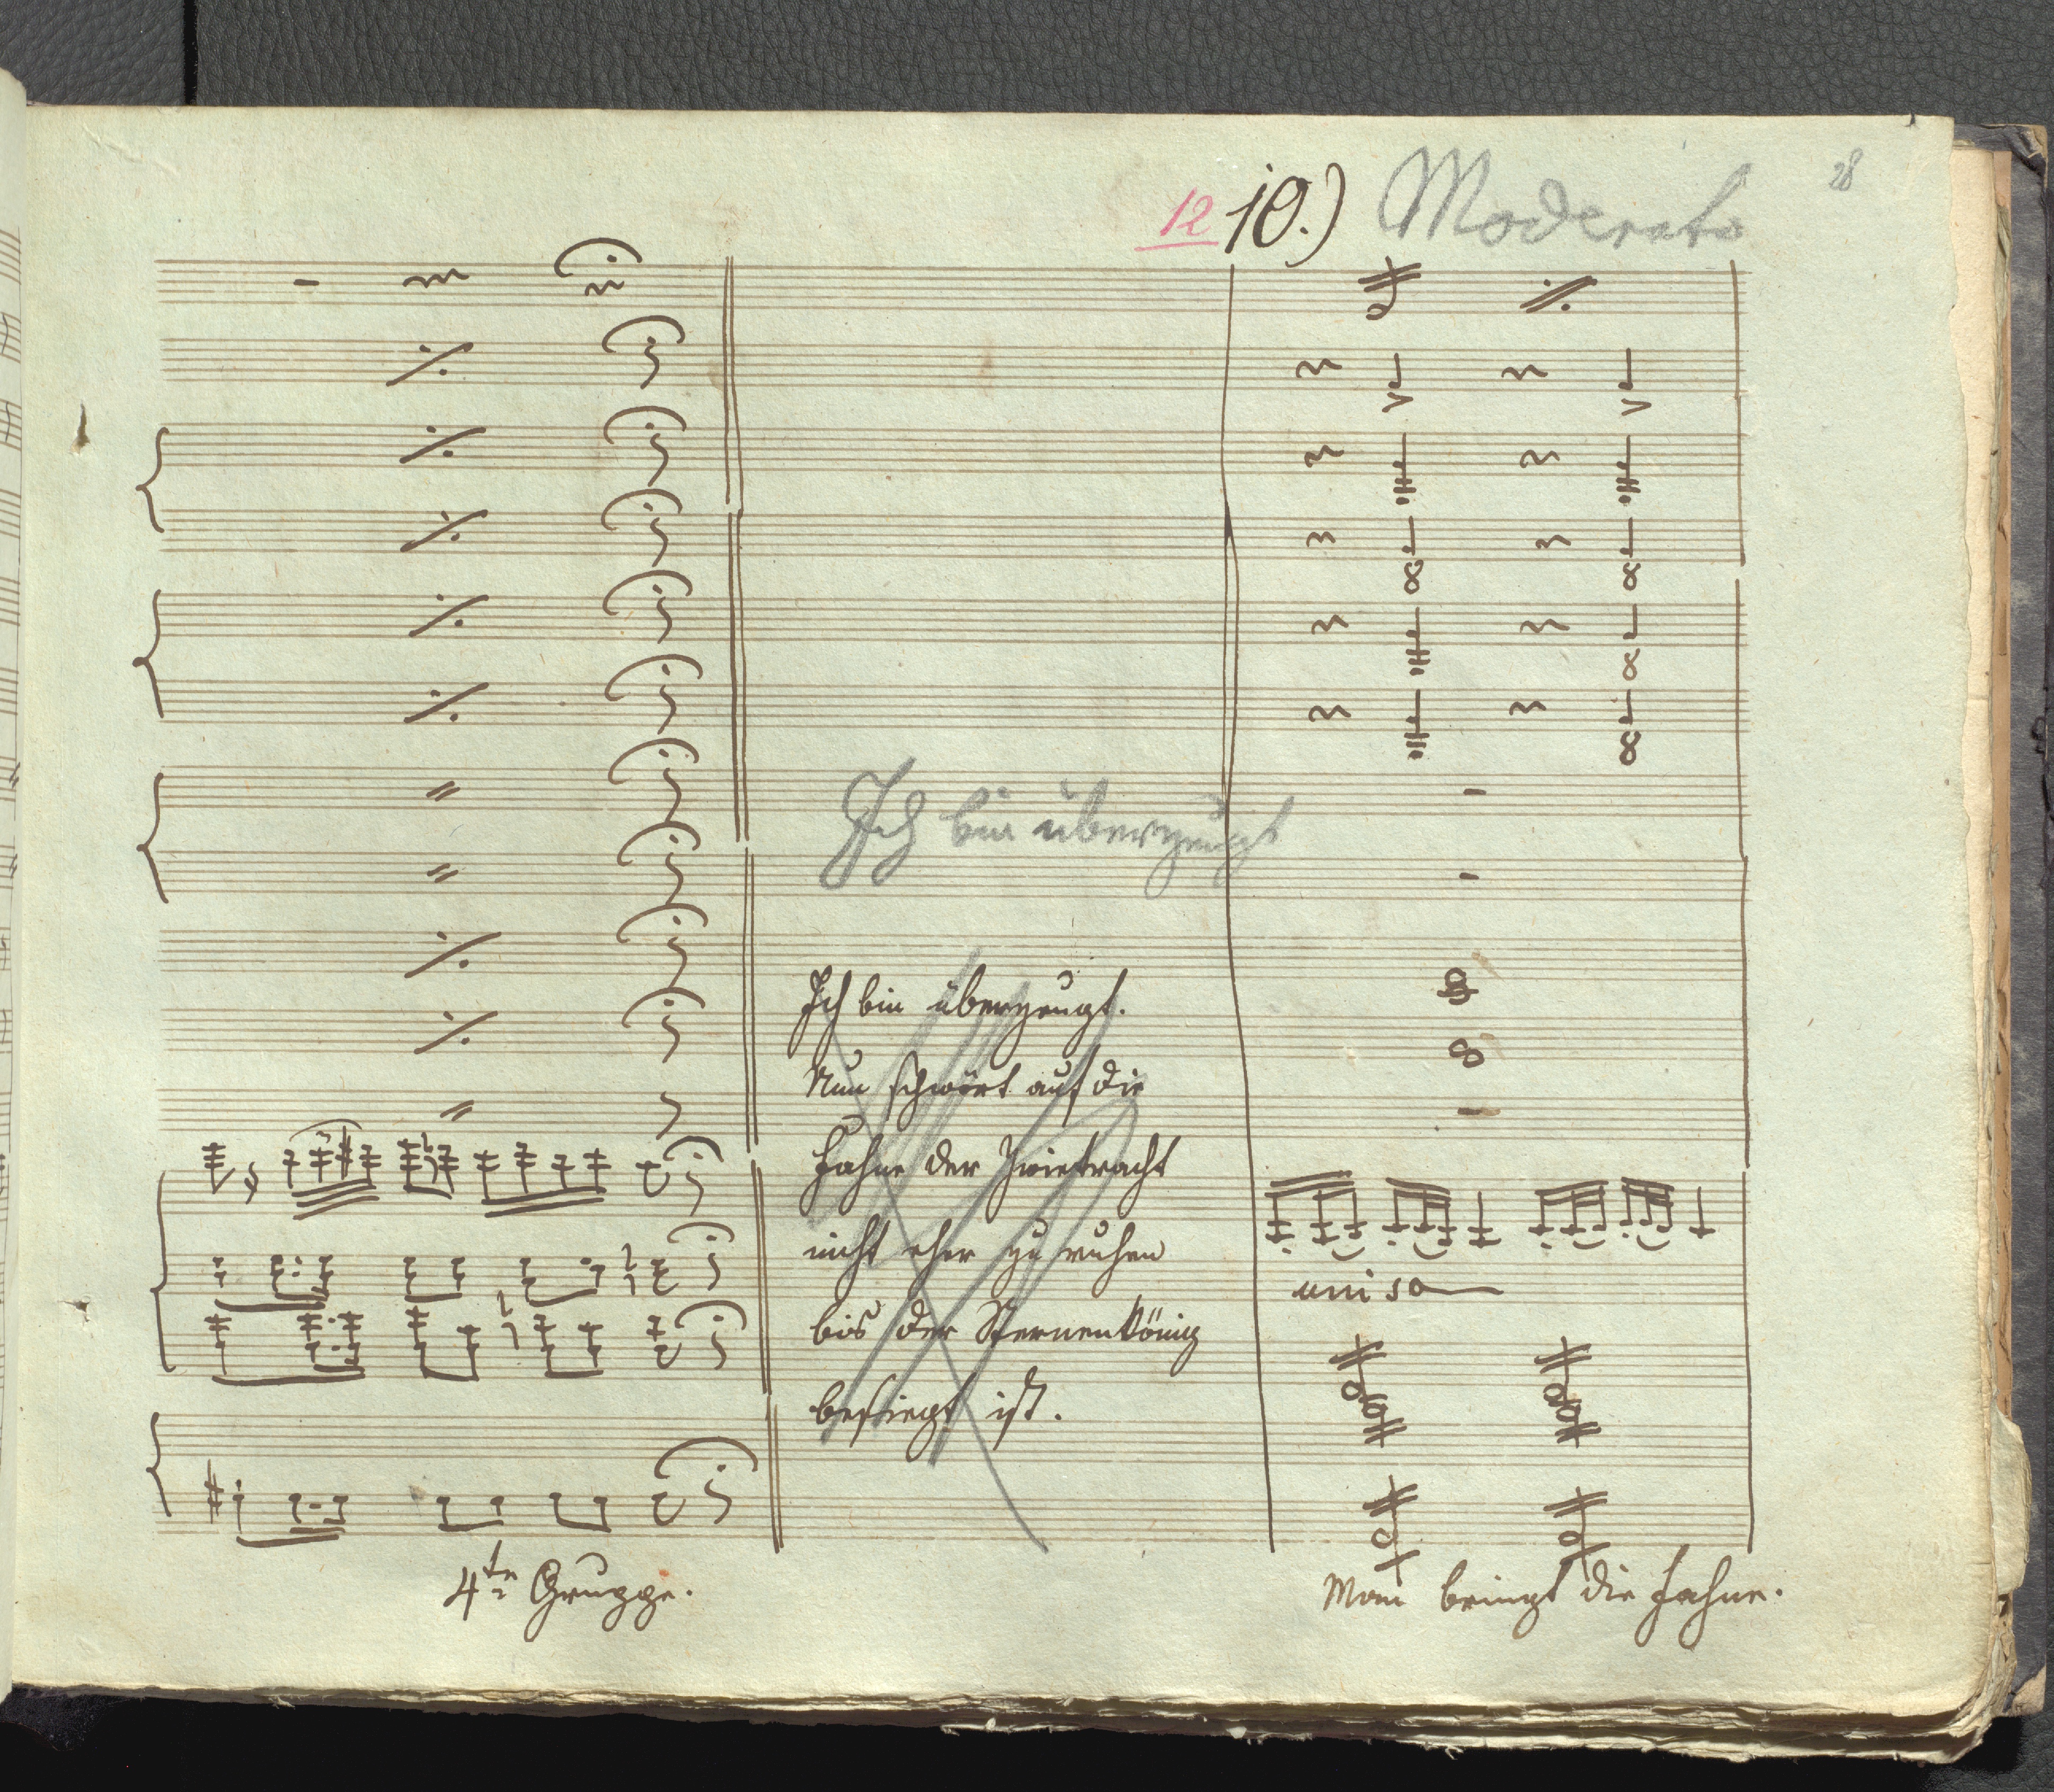 28
12 10.) Moderato
Ich bin überzeugt
Ich bin überzeugt.
Nun schwört auf die
Fahne der Zwietracht
nicht eher zu ruhen
bis der Sternenkönig
besiegt ist.
uniso
4te Gruppe.
Man bringt die Fahne.